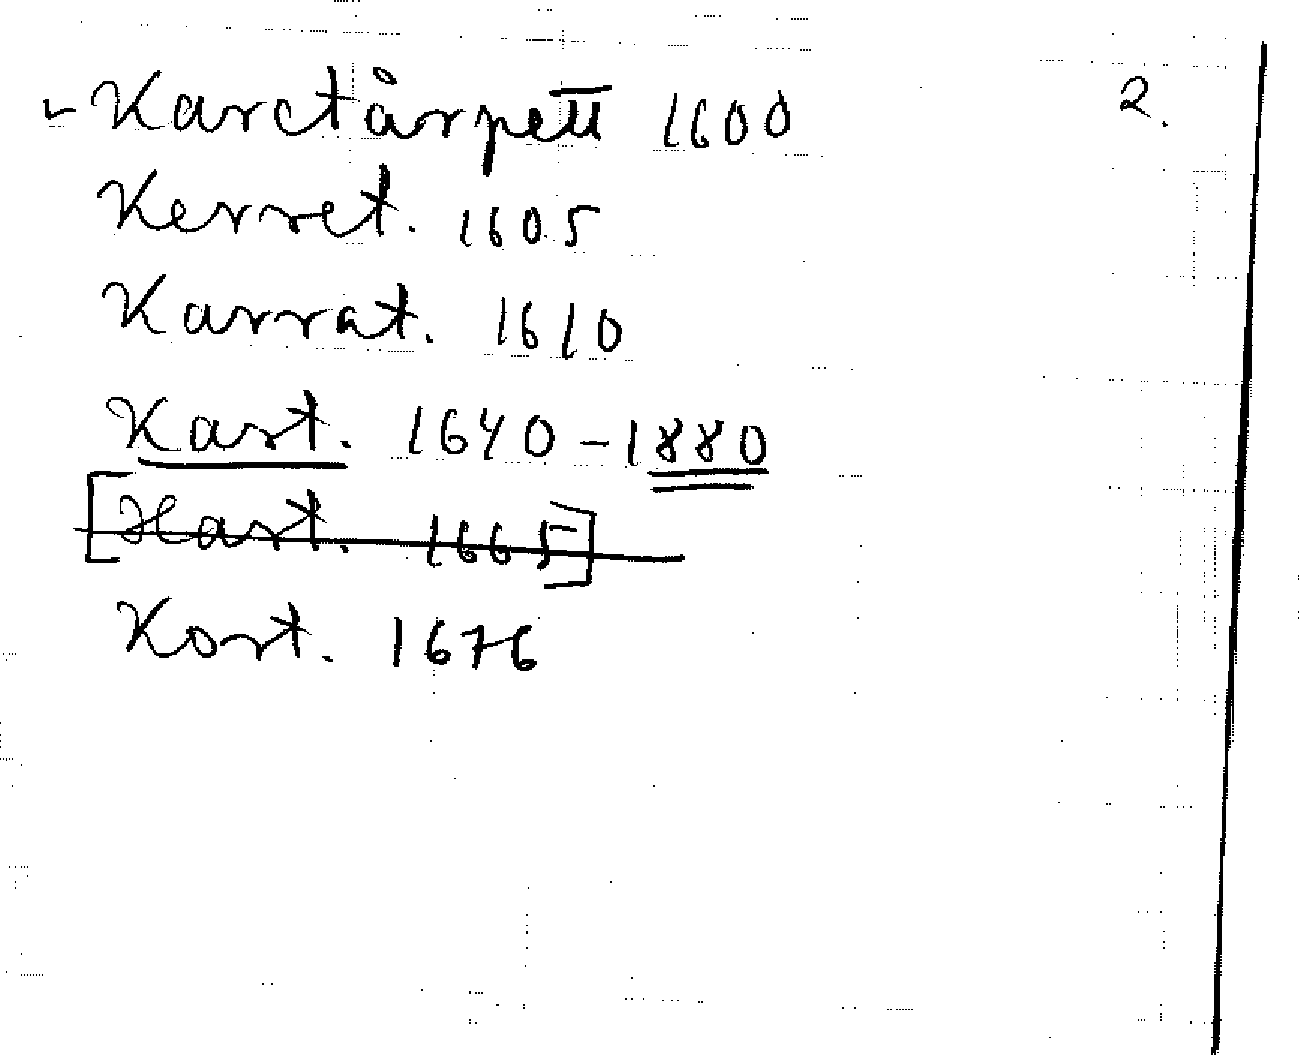 - Karctårpett 1600 2.
Kerret. 1605
Karrat. 1610
Kart. 1640-1880
[Kart. 1665]
Kort. 1676